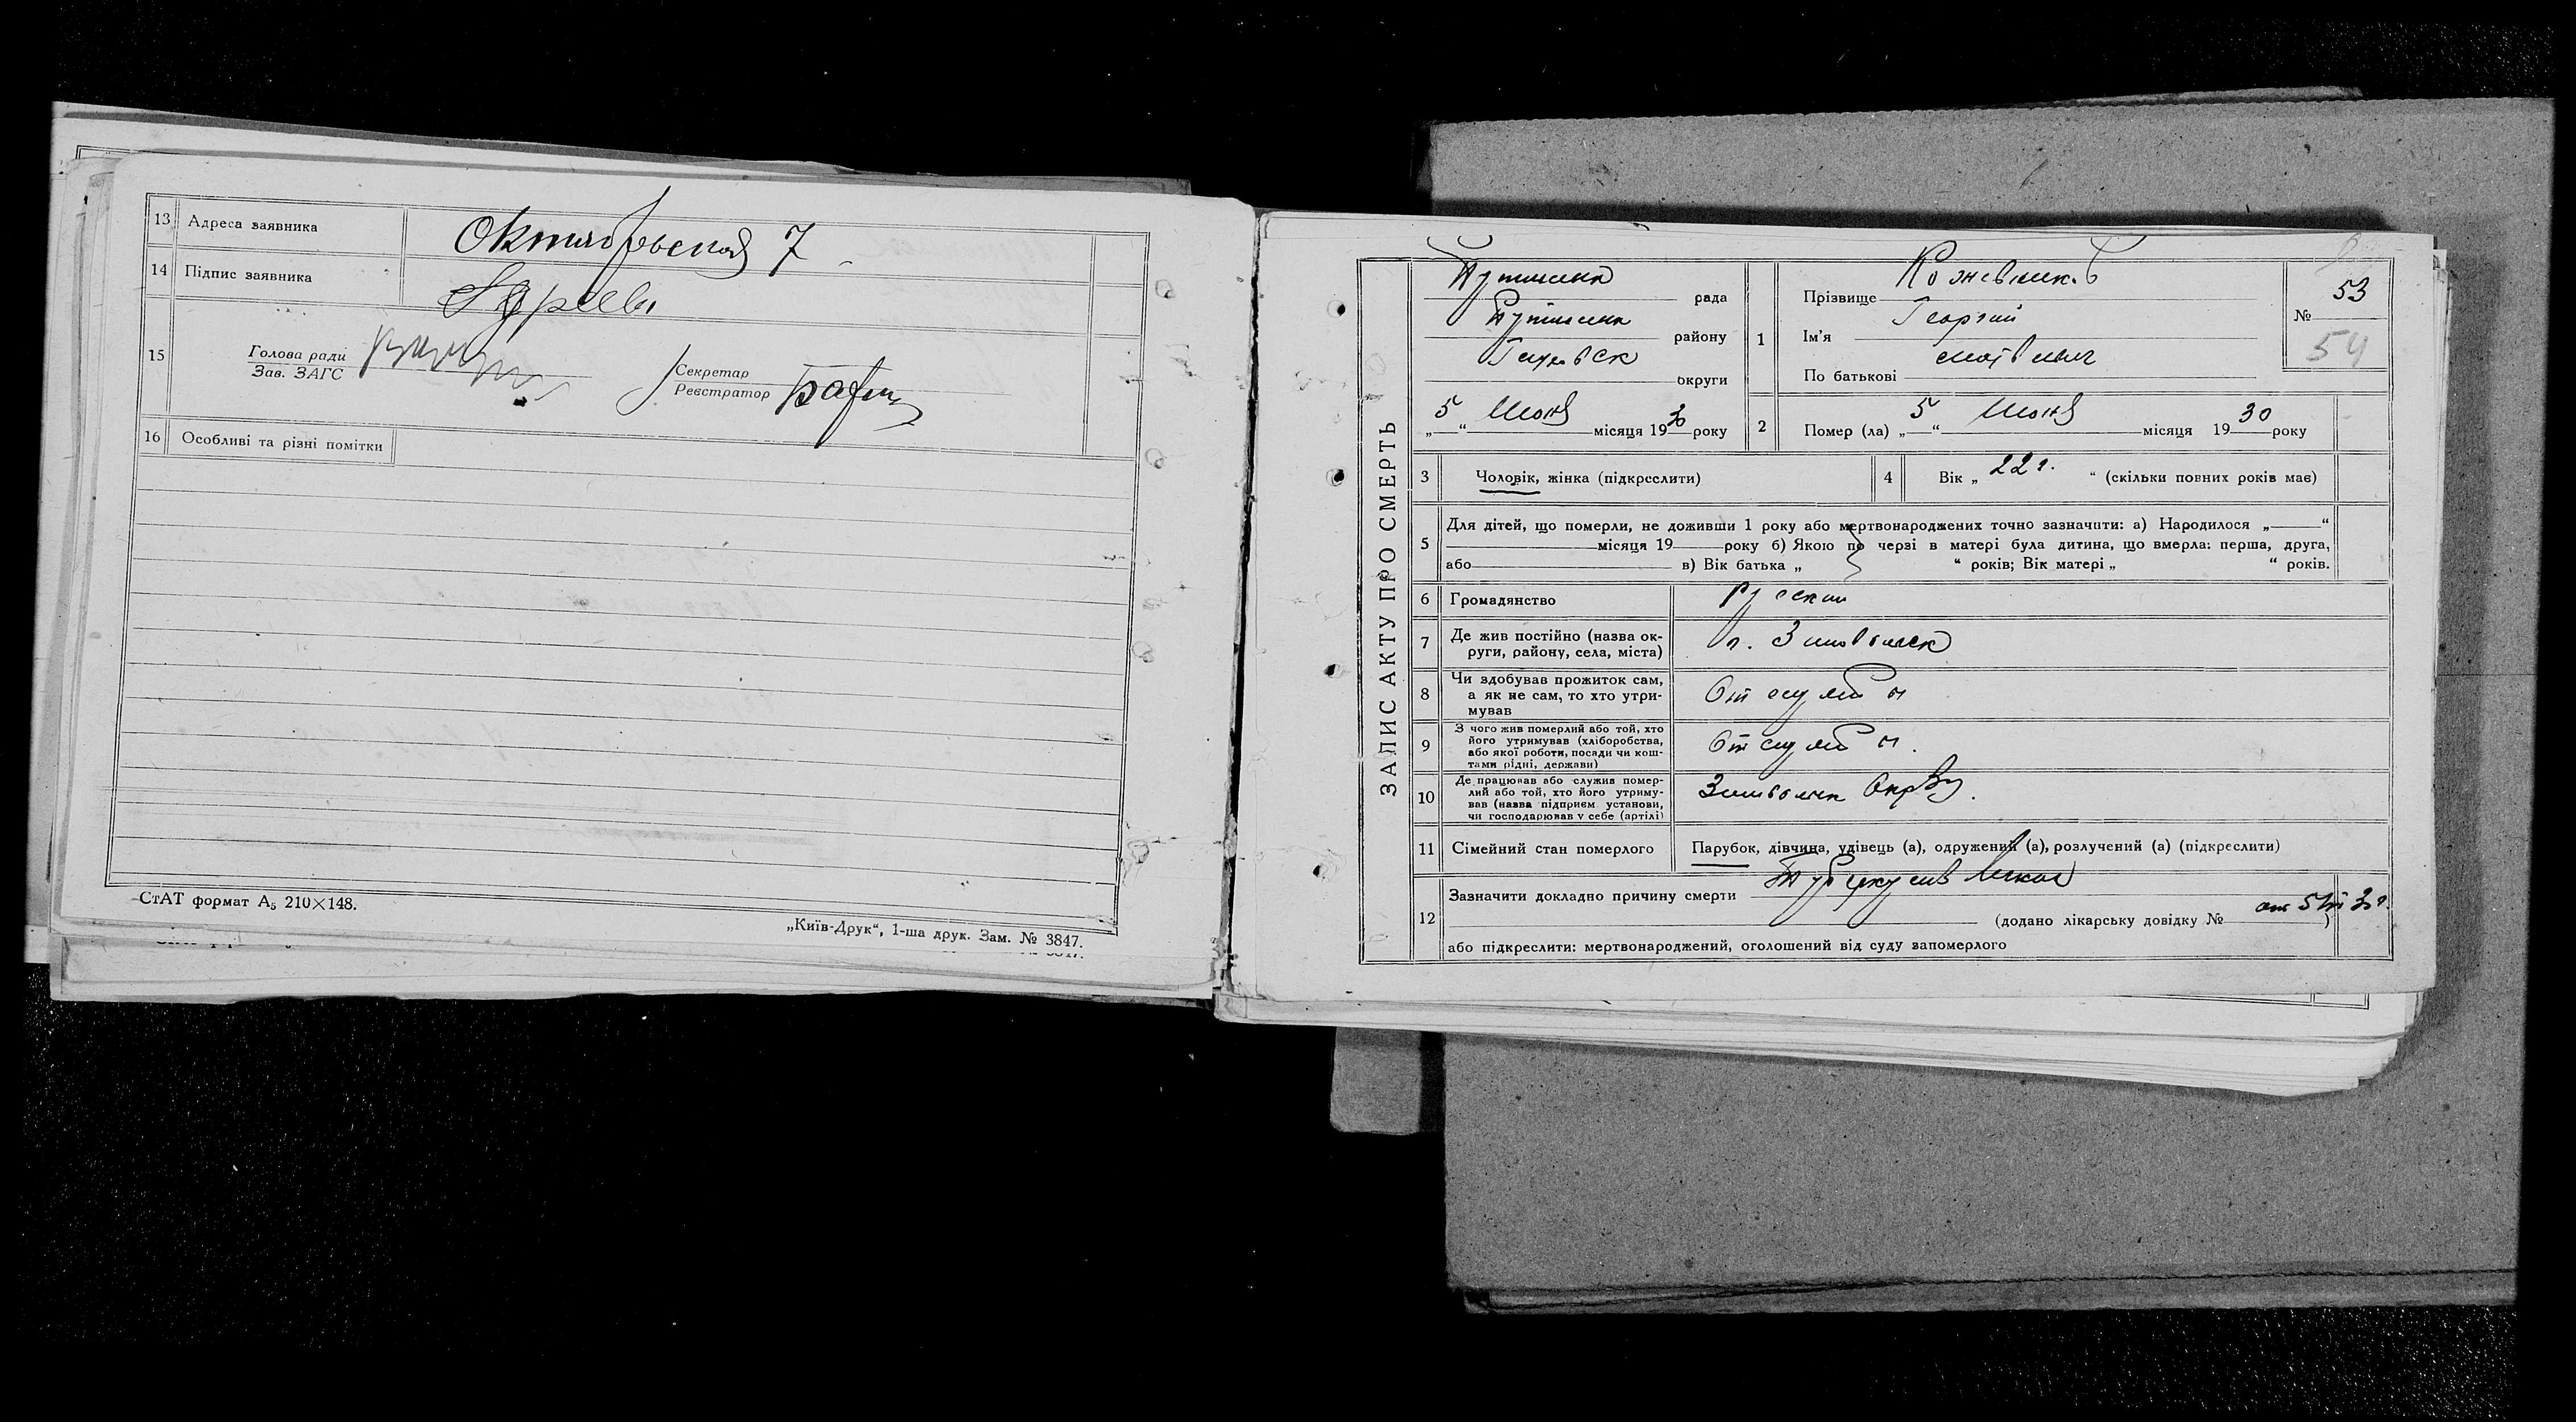 13 Адреса заявника Октябрьская 7
14 Підпис заявника
15 Голова ради
Зав. ЗАГС
Секретар
Реєстратор
16 Особливі та різні помітки
СтАТ формат А5 210×148.
„Київ-Друк“, 1-ша друк. Зам. № 3847.
ЗАПИС АКТУ ПРО СМЕРТЬ
рада
району
округи
„5“ Июня місяця 1930 року
1 Прізвище Кожевников
Ім'я Георгий
По батькові
№ 53
54
2 Помер (ла) „5“ Июня місяця 1930 року
3 Чоловік, жінка (підкреслити)
4 Вік „22 г.“ (скільки повних років має)
5 Для дітей, що померли, не доживши 1 року або мертвонароджених точно зазначити: а) Народилося „ “
місяця 19 року б) Якою по черзі в матері була дитина, що вмерла: перша, друга,
або в) Вік батька „ “ років; Вік матері „ “ років.
6 Громадянство Русский
7 Де жив постійно (назва ок-
руги, району, села, міста) г. Зиновьевск
8 Чи здобував прожиток сам,
а як не сам, то хто утри-
мував От службы
9 З чого жив померлий або той, хто
його утримував (хліборобства,
або якої роботи, посади чи кош-
тами рідні, держави) От службы.
10 Де працював або служив помер-
лий або той, хто його утриму-
вав (назва підприєм. установи,
чи господарював у себе (артілі)
11 Сімейний стан померлого Парубок, дівчина, удівець (а), одружений (а), розлучений (а) (підкреслити)
12 Зазначити докладно причину смерти Туберкулез легких
(додано лікарську довідку № )
або підкреслити: мертвонароджений, оголошений від суду запомерлого